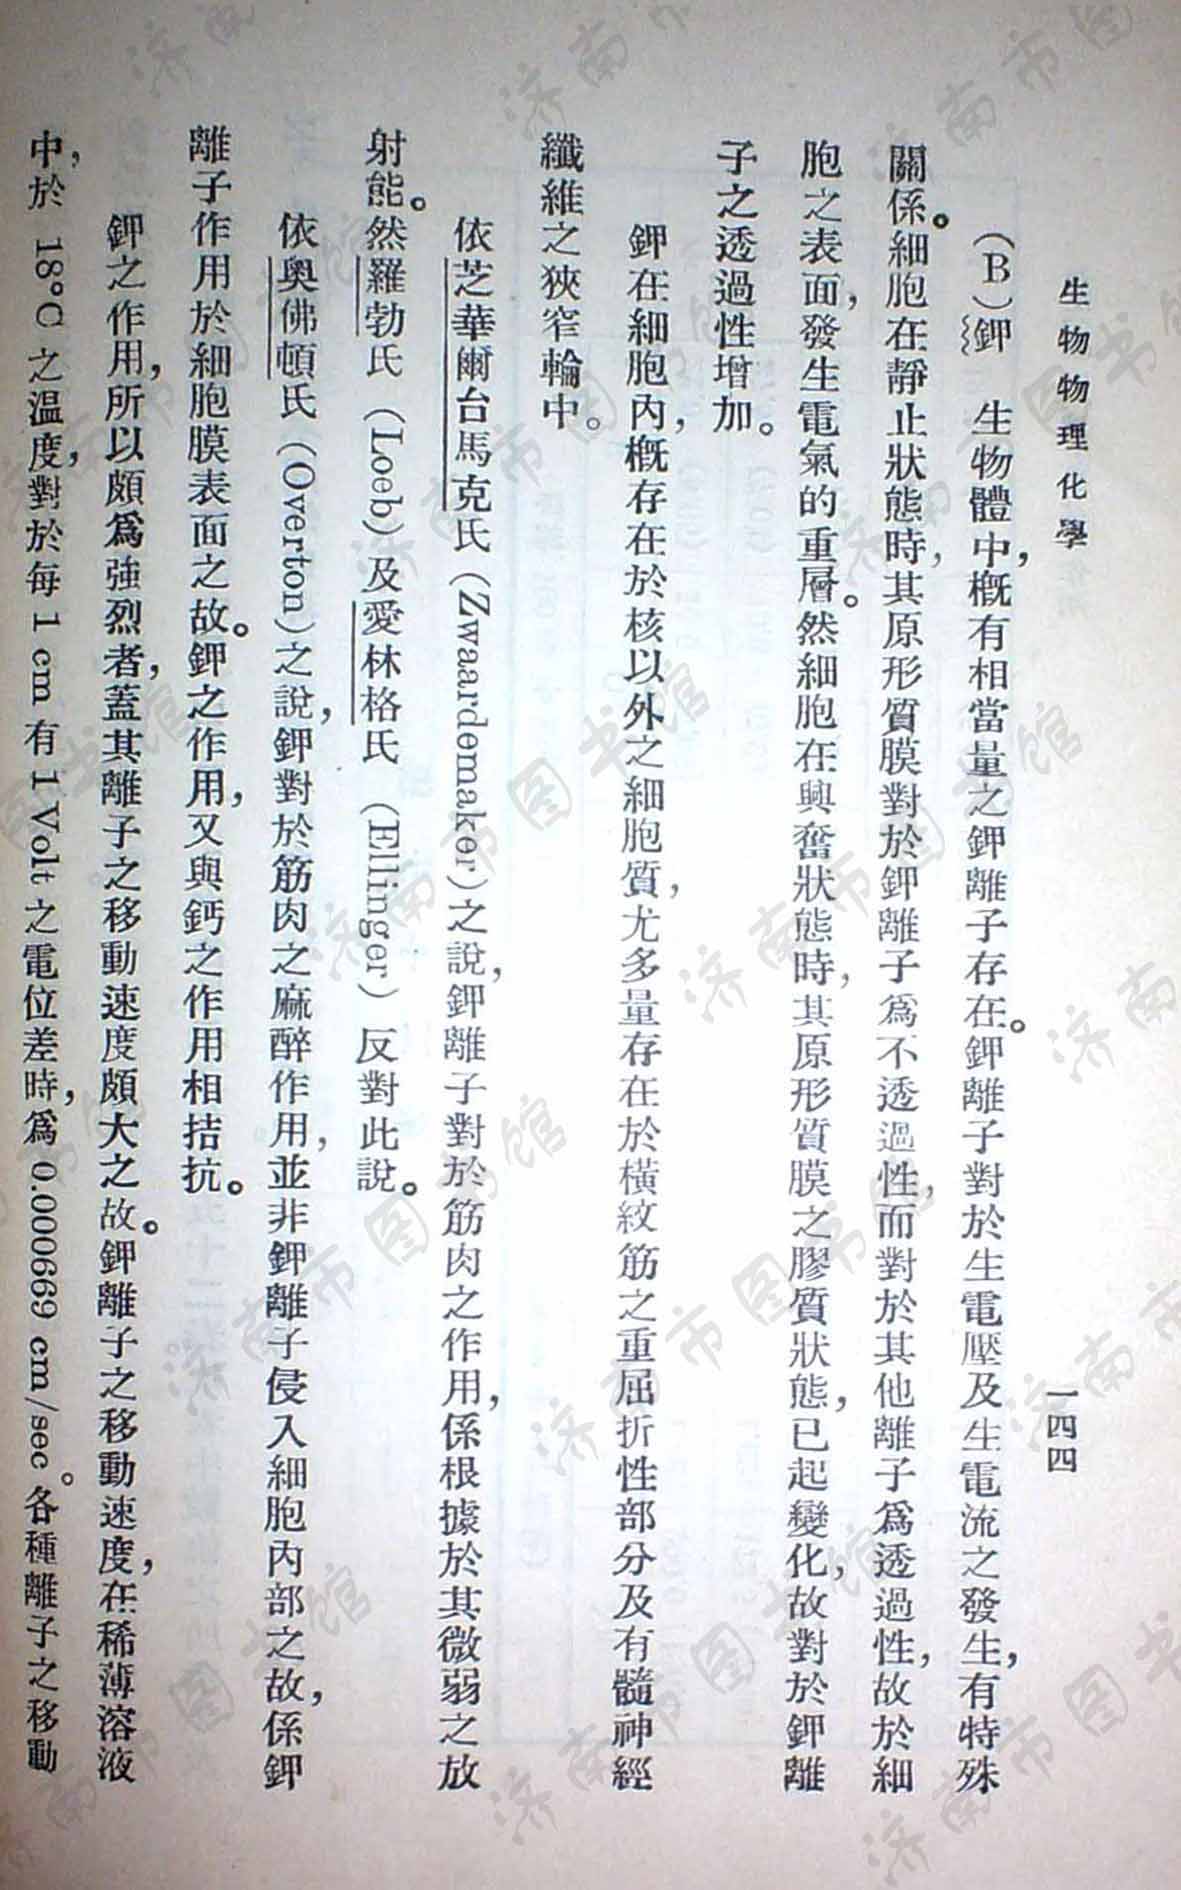 生物物理化學
一四四
(B)鉀　生物體中，概有相當量之鉀離子存在。鉀離子對於生電壓及生電流之發生，有特殊
關係。細胞在靜止狀態時，其原形質膜對於鉀離子爲不透過性，而對於其他離子爲透過性，故於細
胞之表面，發生電氣的重層。然細胞在興奮狀態時，其原形質膜之膠質狀態，已起變化，故對於鉀離
子之透過性增加。
鉀在細胞內，概存在於核以外之細胞質，尤多量存在於橫紋筋之重屈折性部分及有髓神經
纖維之狹窄輪中。
依芝華爾台馬克氏(Zwaardemaker)之說，鉀離子對於筋肉之作用，係根據於其微弱之放
射能。然羅勃氏(Loeb)及愛林格氏(Ellinger)反對此說。
依奧佛頓氏(Overton)之說，鉀對於筋肉之麻醉作用，並非鉀離子侵入細胞內部之故，係鉀
離子作用於細胞膜表面之故。鉀之作用，又與鈣之作用相拮抗。
鉀之作用，所以頗爲強烈者，蓋其離子之移動速度頗大之故。鉀離子之移動速度，在稀薄溶液
中，於 18°C 之溫度，對於每 1 cm 有 1 Volt 之電位差時，爲 0.000669 cm/sec。各種離子之移動
济南市图书馆